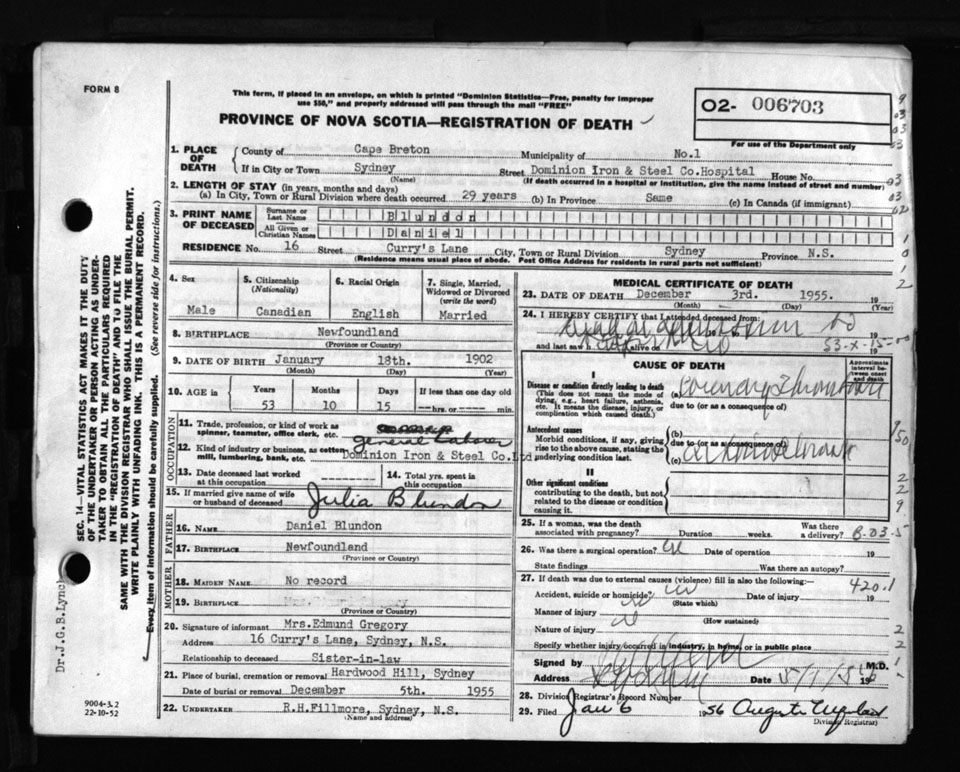 FORM 8
This form, if placed in an envelope, on which is printed "Dominion Statistics—Free, penalty for improper
use $50," and properly addressed will pass through the mail "FREE"
PROVINCE OF NOVA SCOTIA—REGISTRATION OF DEATH
02- 006703
For use of the Department only
1. PLACE OF DEATH
County of Cape Breton Municipality of No.1
If in City or Town Sydney Street Dominion Iron & Steel Co.Hospital House No.
(Name) (If death occurred in a hospital or institution, give the name instead of street and number)
2. LENGTH OF STAY (in years, months and days)
(a) In City, Town or Rural Division where death occurred 29 years (b) In Province Same (c) In Canada (if immigrant)
3. PRINT NAME OF DECEASED
Surname or Last Name Blundon
All Given or Christian Names Daniel
RESIDENCE No. 16 Street Curry's Lane City, Town or Rural Division Sydney Province N.S.
(Residence means usual place of abode. Post Office Address for residents in rural parts not sufficient)
4. Sex
Male
5. Citizenship (Nationality)
Canadian
6. Racial Origin
English
7. Single, Married, Widowed or Divorced (write the word)
Married
8. BIRTHPLACE Newfoundland
(Province or Country)
9. DATE OF BIRTH January 18th. 1902
(Month) (Day) (Year)
10. AGE in Years Months Days If less than one day old
53 10 15 ---hrs. or --- min.
OCCUPATION
11. Trade, profession, or kind of work as spinner, teamster, office clerk, etc.
general Laborer
12. Kind of industry or business, as cotton mill, lumbering, bank, etc. Dominion Iron & Steel Co.Ltd.
13. Date deceased last worked at this occupation
14. Total yrs. spent in this occupation
15. If married give name of wife or husband of deceased Julia Blundon
FATHER
16. NAME Daniel Blundon
17. BIRTHPLACE Newfoundland
(Province or Country)
MOTHER
18. MAIDEN NAME No record
19. BIRTHPLACE
(Province or Country)
20. Signature of informant Mrs.Edmund Gregory
Address 16 Curry's Lane, Sydney, N.S.
Relationship to deceased Sister-in-law
21. Place of burial, cremation or removal Hardwood Hill, Sydney
Date of burial or removal December 5th. 1955
22. UNDERTAKER R.H.Fillmore, Sydney, N.S.
(Name and address)
MEDICAL CERTIFICATE OF DEATH
23. DATE OF DEATH December 3rd. 1955. 19
(Month) (Day) (Year)
24. I HEREBY CERTIFY that I attended deceased from:
and last saw h alive on 19
CAUSE OF DEATH
Approximate interval between onset and death
I
Disease or condition directly leading to death
(This does not mean the mode of dying, e.g., heart failure, asthenia, etc. It means the disease, injury, or complication which caused death.)
(a)
due to (or as a consequence of)
Antecedent causes
Morbid conditions, if any, giving rise to the above cause, stating the underlying condition last.
(b)
due to (or as a consequence of)
(c)
II
Other significant conditions
contributing to the death, but not related to the disease or condition causing it.
25. If a woman, was the death associated with pregnancy? Duration weeks. Was there a delivery?
26. Was there a surgical operation? Date of operation 19
State findings Was there an autopsy?
27. If death was due to external causes (violence) fill in also the following:—
420.1
Accident, suicide or homicide? Date of injury 19
(State which)
Manner of injury
(How sustained)
Nature of injury
Specify whether injury occurred in industry, in home, or in public place
Signed by M.D.
Address Date 19
28. Division Registrar's Record Number
29. Filed Jan 6 1956
Division Registrar)
SEC. 14—VITAL STATISTICS ACT MAKES IT THE DUTY
OF THE UNDERTAKER OR PERSON ACTING AS UNDER-
TAKER TO OBTAIN ALL THE PARTICULARS REQUIRED
IN THE "REGISTRATION OF DEATH" AND TO FILE THE
SAME WITH THE DIVISION REGISTRAR WHO SHALL ISSUE THE BURIAL PERMIT.
WRITE PLAINLY WITH UNFADING INK. THIS IS A PERMANENT RECORD.
Every item of information should be carefully supplied. (See reverse side for instructions.)
Dr.J.G.B.Lynch
9004-3.2
22-10-52